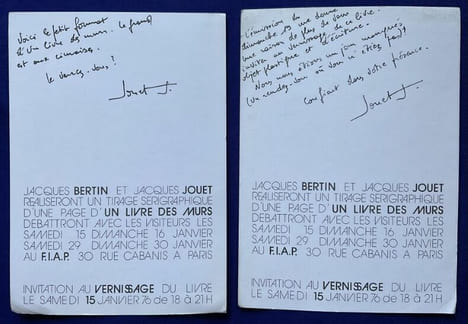 Voici le petit format
d'un livre des murs. Le grand
est aux cimaises.
Le verrez-vous ?
Jouet J.
JACQUES BERTIN ET JACQUES JOUET
REALISERONT UN TIRAGE SERIGRAPHIQUE
D'UNE PAGE D'UN LIVRE DES MURS
DEBATTRONT AVEC LES VISITEURS LES
SAMEDI 15 DIMANCHE 16 JANVIER
SAMEDI 29 DIMANCHE 30 JANVIER
AU F.I.A.P. 30 RUE CABANIS A PARIS
INVITATION AU VERNISSAGE DU LIVRE
LE SAMEDI 15 JANVIER 76 de 18 à 21H
L'émission du
dimanche me donne
une raison de plus de vous
inviter au vernissage de ce livre
objet plastique et d'écriture.
Nous nous étions un jour manqués
(un rendez-vous où vous n'étiez pas)
Confiant dans votre présence.
Jouet J.
JACQUES BERTIN ET JACQUES JOUET
REALISERONT UN TIRAGE SERIGRAPHIQUE
D'UNE PAGE D'UN LIVRE DES MURS
DEBATTRONT AVEC LES VISITEURS LES
SAMEDI 15 DIMANCHE 16 JANVIER
SAMEDI 29 DIMANCHE 30 JANVIER
AU F.I.A.P. 30 RUE CABANIS A PARIS
INVITATION AU VERNISSAGE DU LIVRE
LE SAMEDI 15 JANVIER 76 de 18 à 21H